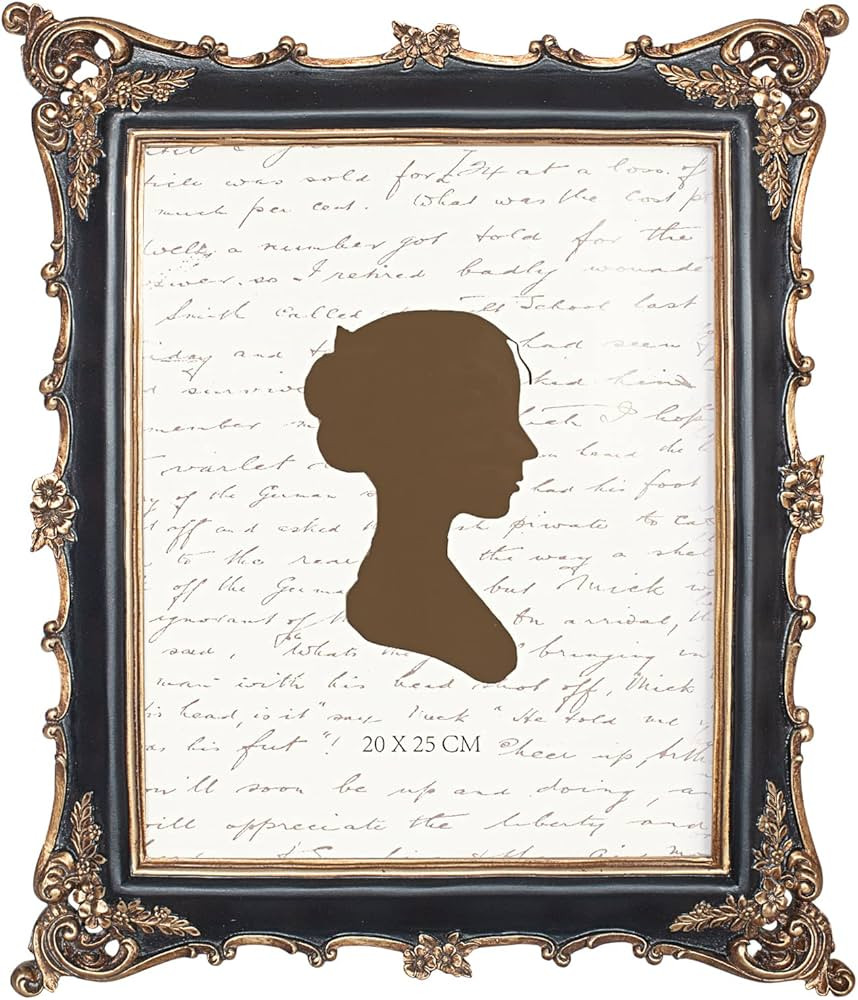 ticle was sold for 24 at a loss of
much per cent. What was the cost pr
Well, a number got told for the
so I retired badly wounde
Smith called School last
day and had seen
survivo ked him
member m I hop
varlet heard the
of the German had his foot
off and asked private to ca
to the rear the way a shel
off the Germa but Mick w
ignorant of th On arrival, th
said, "Whats bringing in
man with his head shot off, Mick
his head, is it" say "He told me
as his feet"! Cheer up Arth
20 X 25 CM
u'll soon be up and doing, an
will appreciate the liberty and